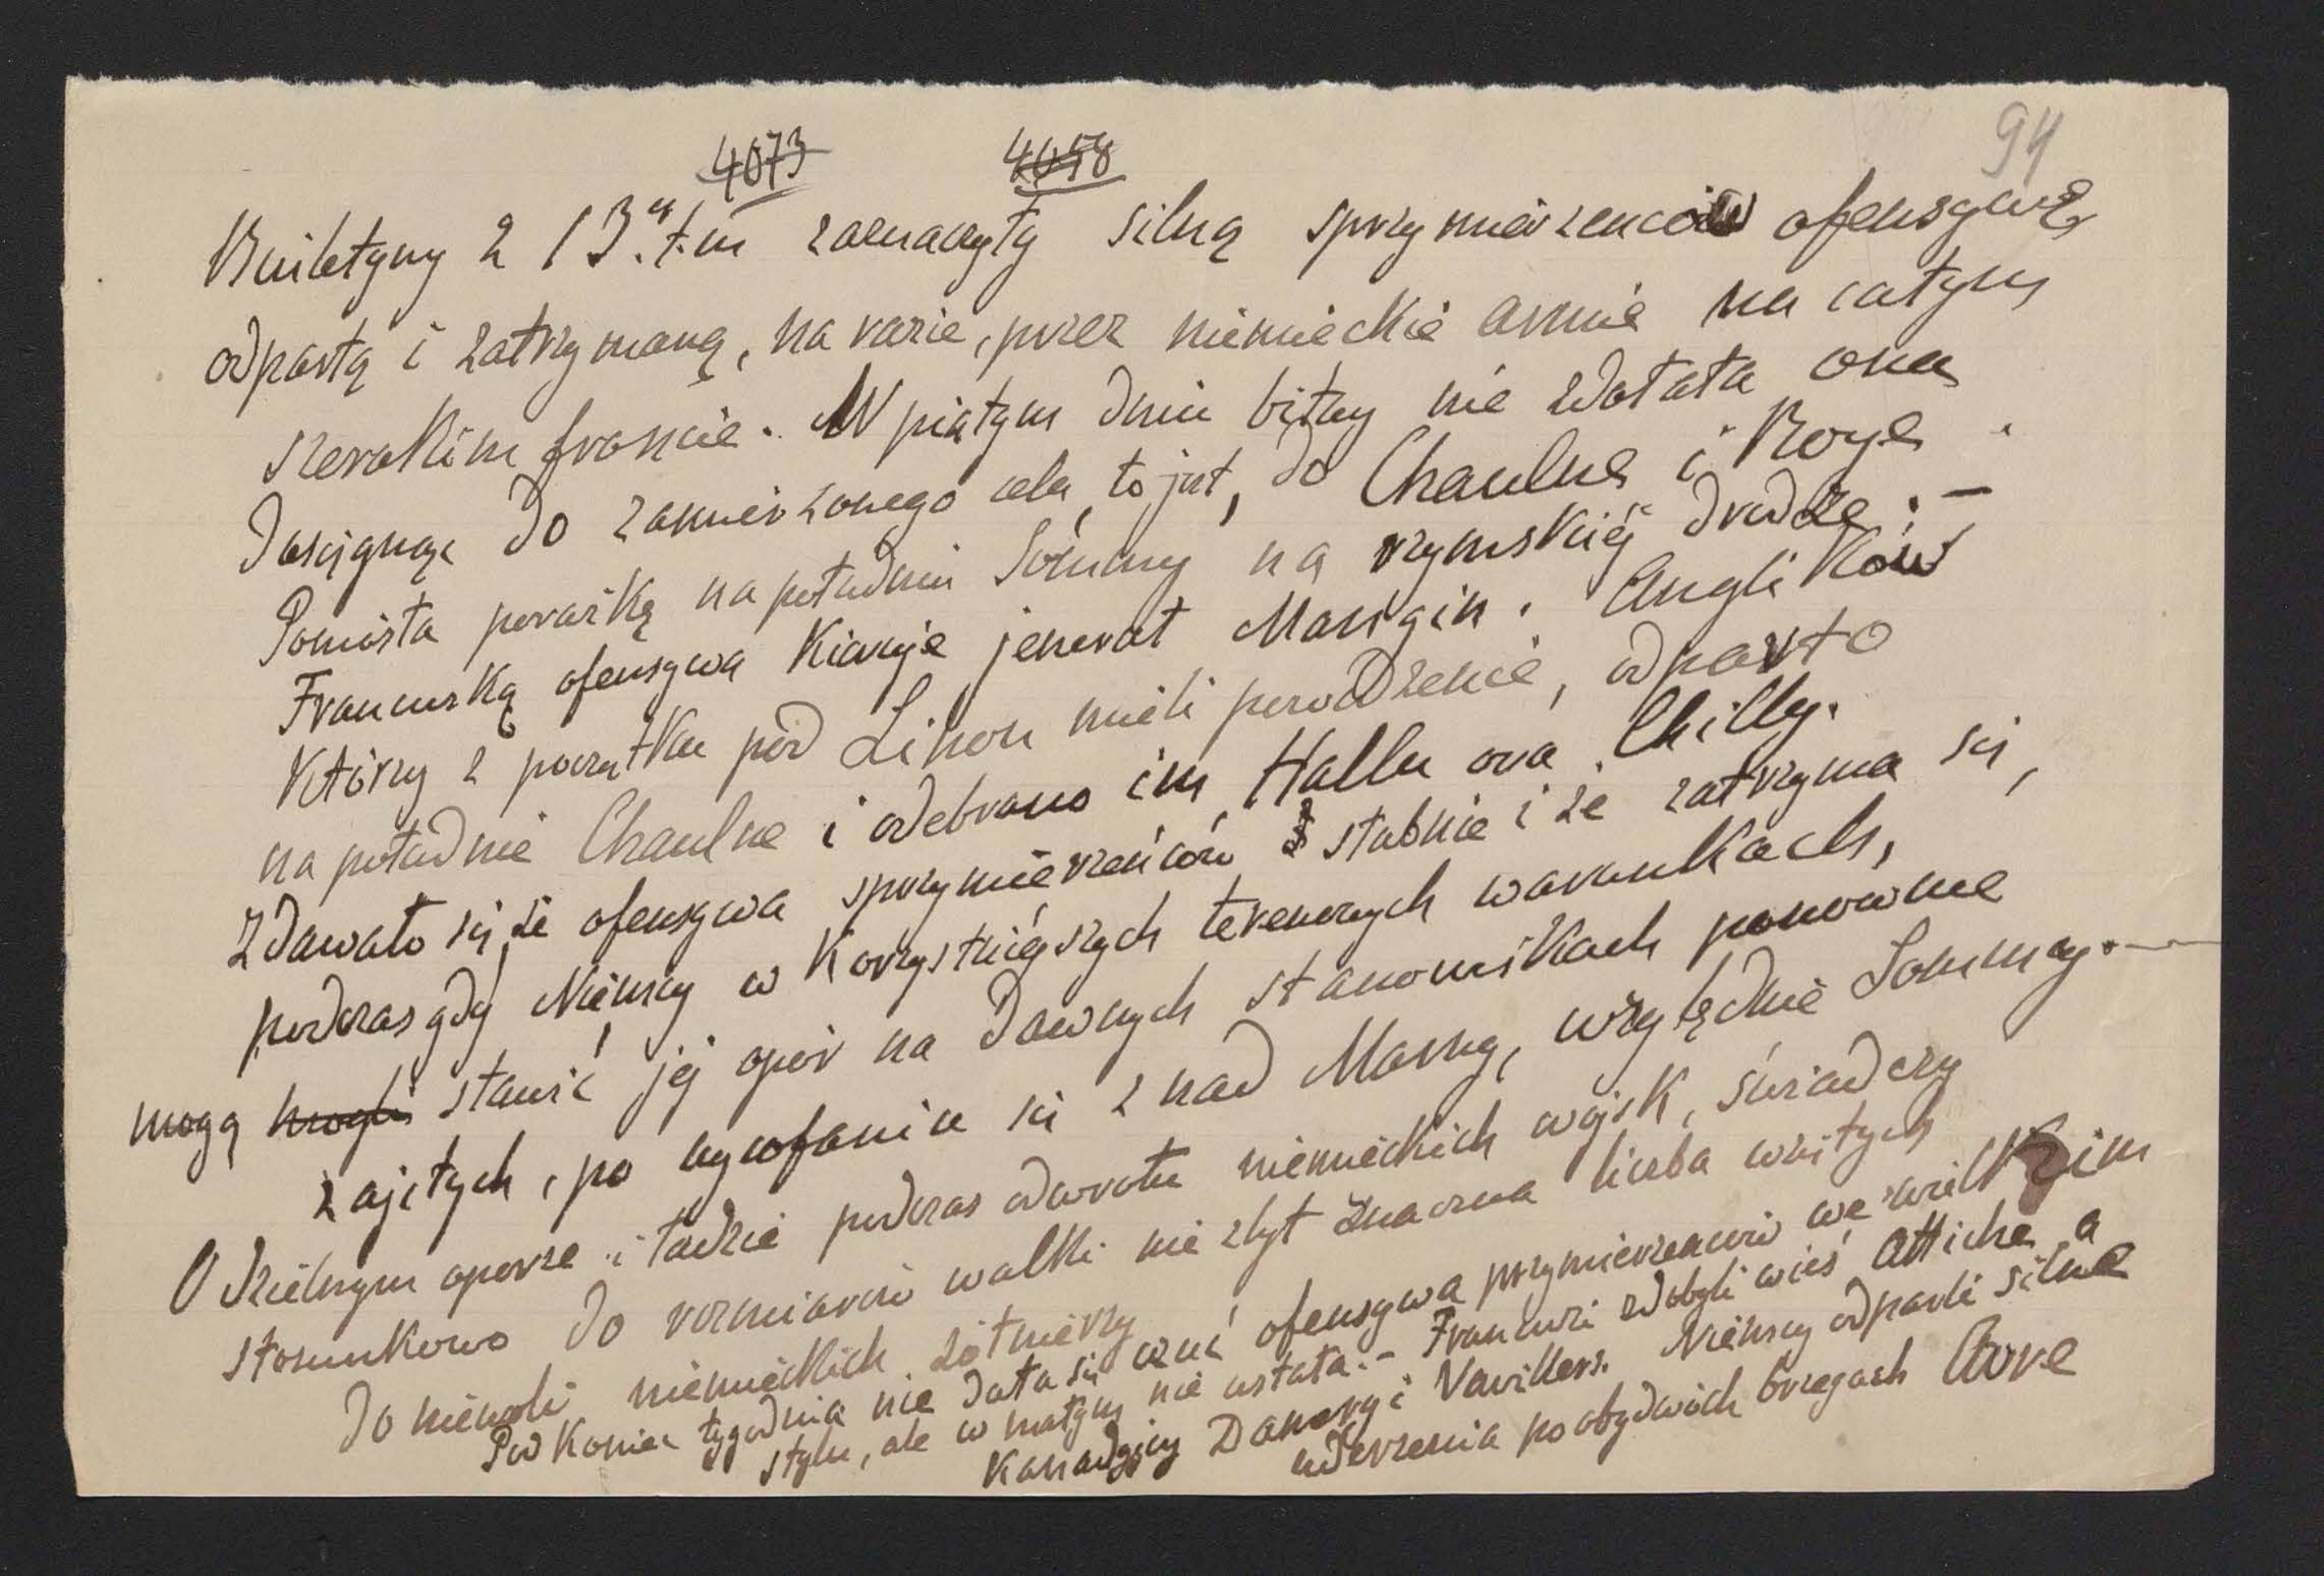 4073 4058 94
Buletyny z 13.go t.m zaznaczyły silną sprzymierzeńców ofensywę
odpartą i zatrzymaną, na razie, przez niemieckie armie na całym
szerokim froncie. W piątym dniu bitwy nie zdołała ona
dosięgnąć do zamierzonego celu, to jest, do Chaulne i Roye.
Poniosła porażkę na południu Sommy na rzymskiéj drodze. –
Francuską ofensywą kieruje jenerał Mangin. Anglików
którzy z początku pod Lihon mieli powodzenie, odparto
na południe Chaulne i odebrano im Hallu ora Chilly.
Zdawało się, że ofensywa sprzymierzeńców słabnie i że zatrzyma się,
podczas gdy Niemcy w korzystniéjszych terenowych warunkach,
mogą mogli stawić jéj opór na dawnych stanowiskach ponownie
zajętych, po wycofaniu się z nad Marny, względnie Sommy. –
O dzielnym oporze i ładzie podczas odwrotu niemieckich wojsk, świadczy
stosunkowo do rozmiarów walki nie zbyt znaczna liczba wziętych
do niewoli niemieckich żołnierzy
Pod koniec tygodnia nie dała się czuć ofensywa przymierzeńców we wielkim
stylu, ale w małym nie ustała. – Francuzi zdobyli wieś Attiche a
Kanadyjcy Damery i Vavillers. Niemcy odparli silne
uderzenia po obydwóch brzegach Avre